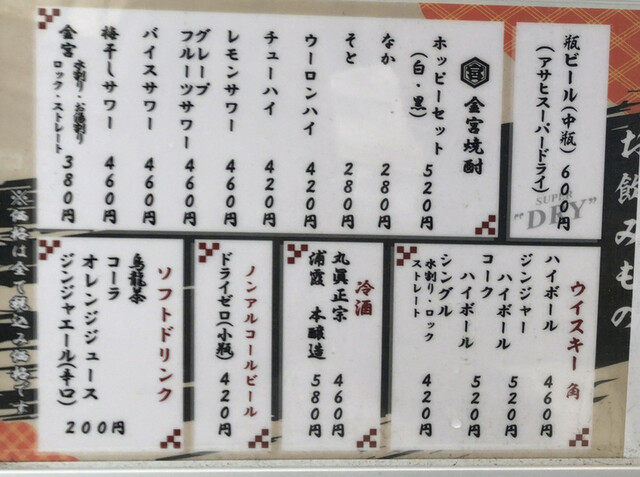 お飲みもの
瓶ビール(中瓶) 600円
(アサヒスーパードライ)
SUPER
"DRY"
金宮焼酎
ホッピーセット
(白・黒) 520円
なか 280円
そと 280円
ウーロンハイ 420円
チューハイ 420円
レモンサワー 460円
グレープ
フルーツサワー 460円
バイスサワー 460円
梅干しサワー 460円
金宮 水割り・お湯割り
ロック・ストレート 380円
ウイスキー 角
ハイボール 460円
ジンジャー
ハイボール 520円
コーク
ハイボール 520円
シングル
水割り・ロック
ストレート 420円
冷酒
丸眞正宗 460円
浦霞 本醸造 580円
ノンアルコールビール
ドライゼロ(小瓶) 420円
ソフトドリンク
烏龍茶
コーラ
オレンジジュース
ジンジャエール(辛口)
200円
※価格は全て税込み価格です